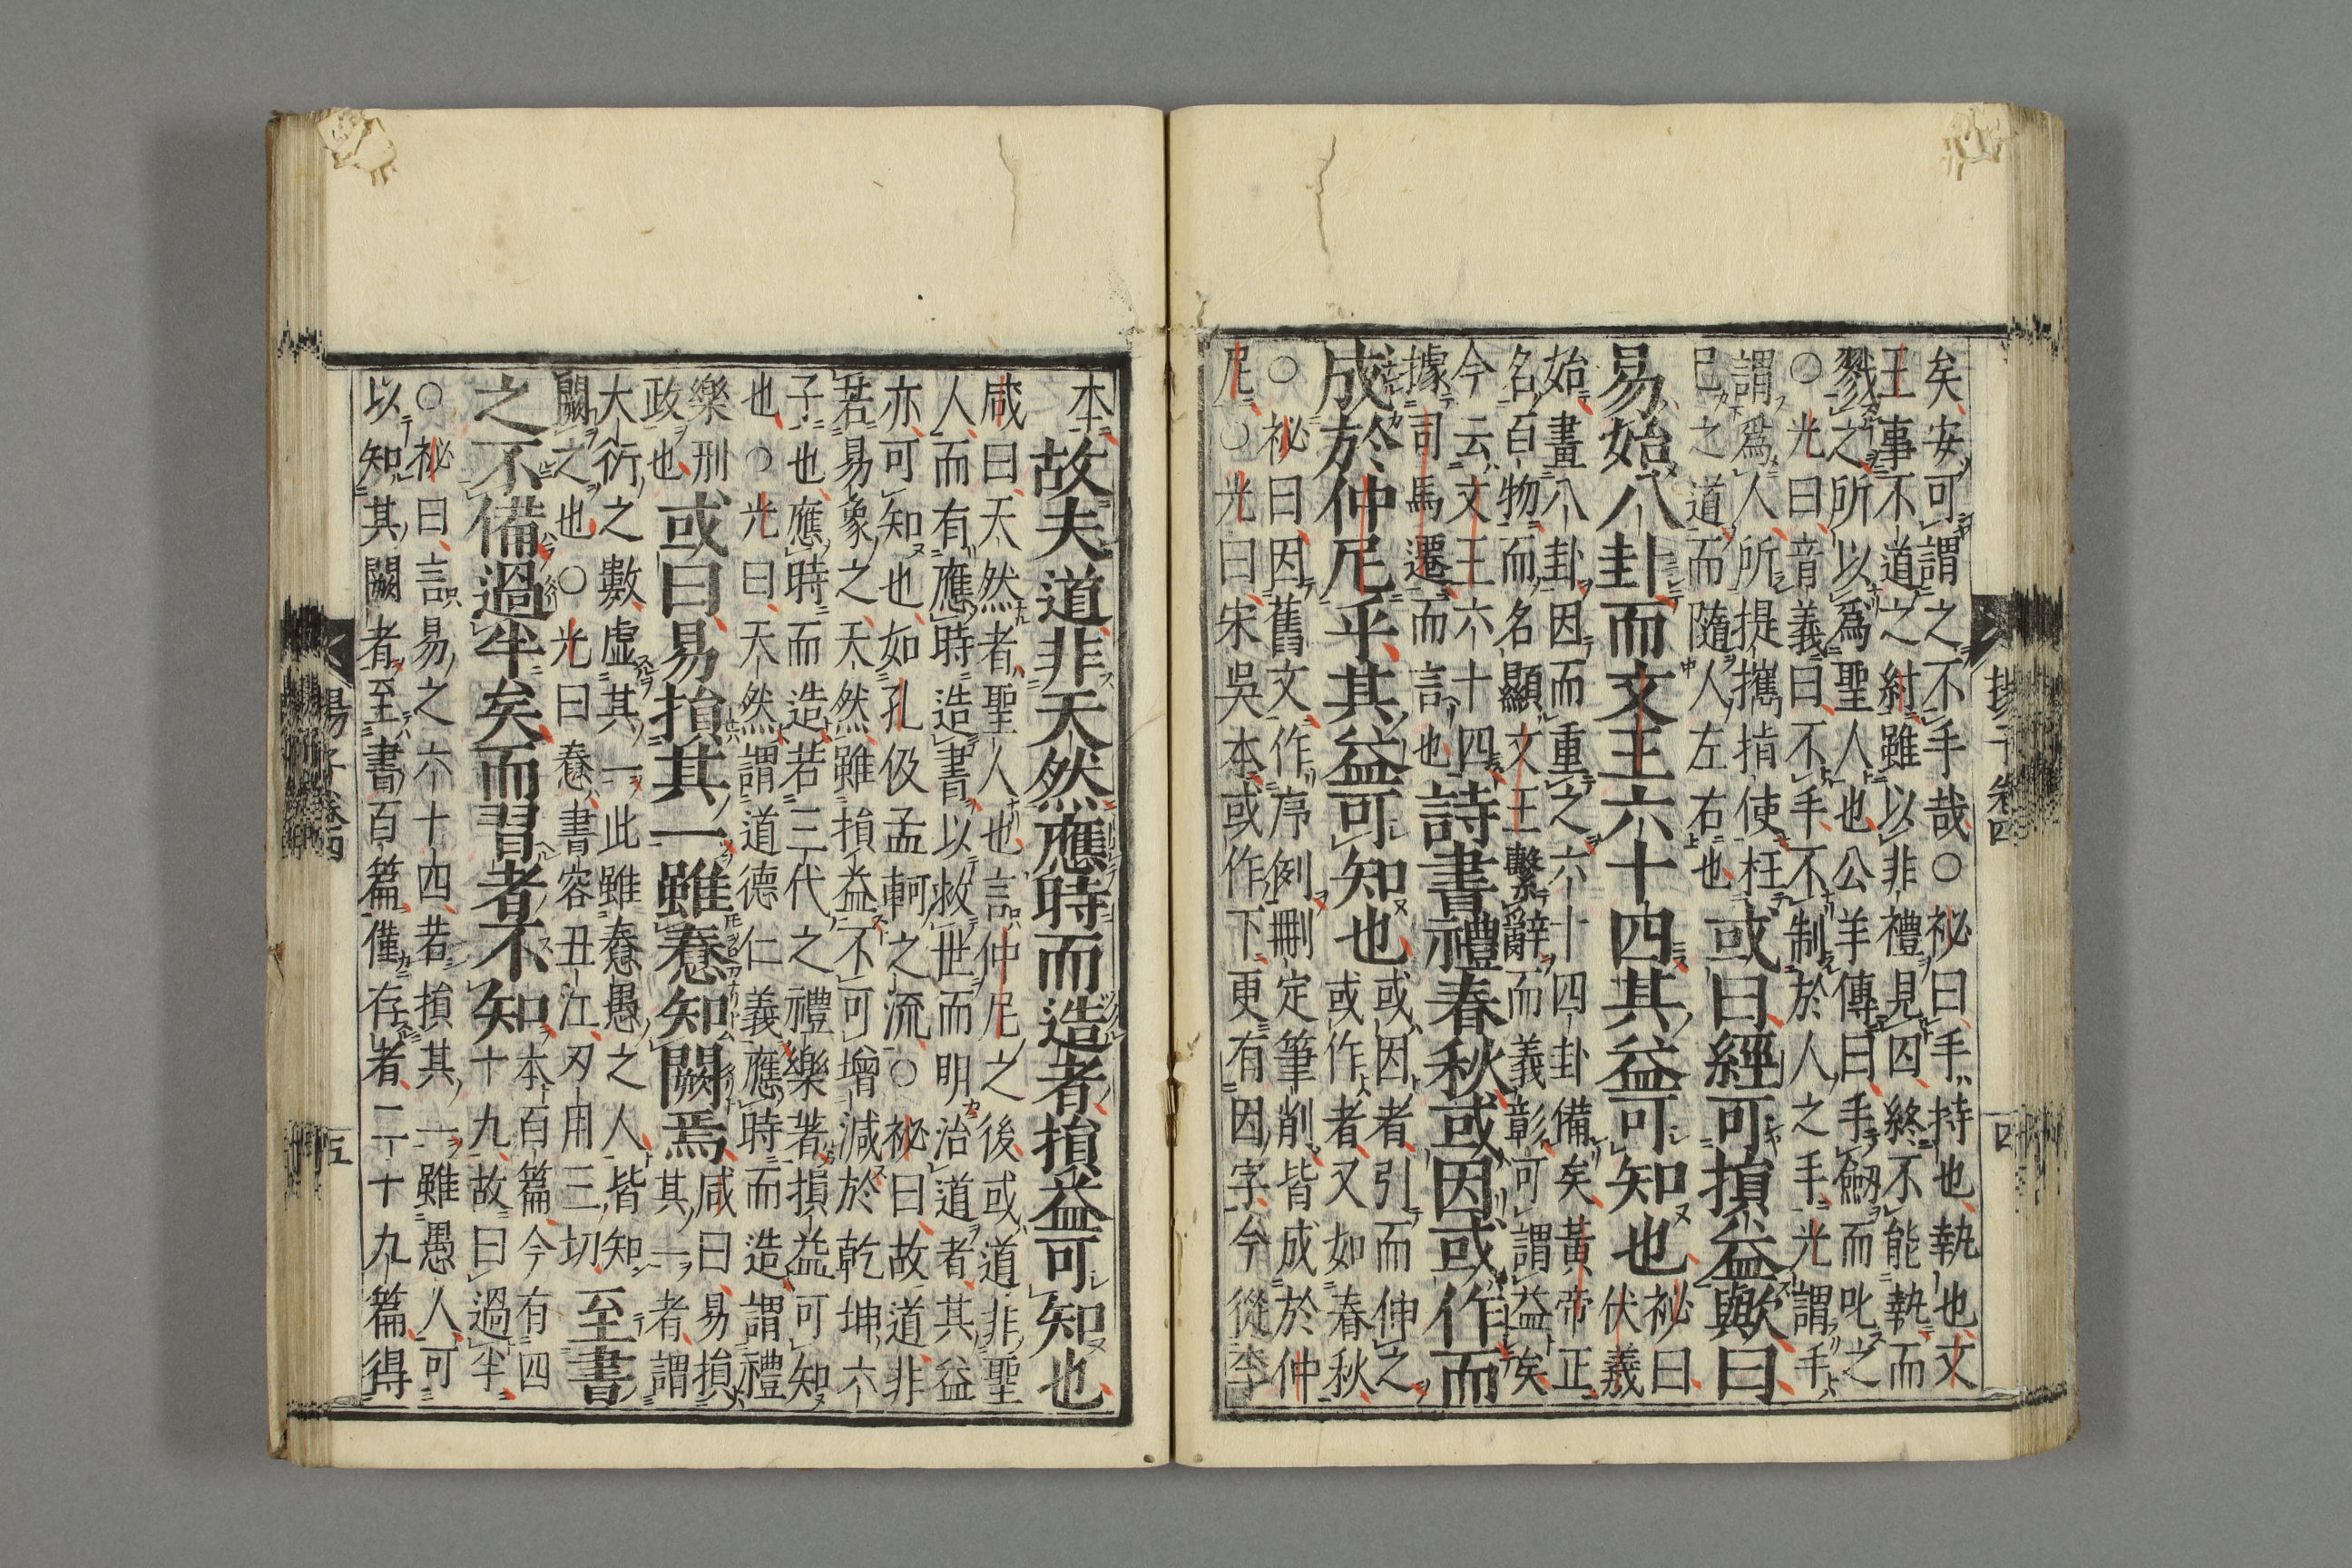 矣安可謂之不手哉○祕曰手持也執也文
王事不道之紂雖以非禮見囚終不能執而
戮之所以爲聖人也公羊傳曰手劒而叱之
○光曰音義曰不手不制於人之手光謂手
謂爲人所提攜指使枉
己之道而隨人左右也
或曰經可損益歟曰
易始八卦而文王六十四其益可知也
祕曰
伏羲
始畫八卦因而重之六十四卦備矣黃帝正
名百物而名顯文王繫辭而義彰可謂益矣
今云文王六十四
據司馬遷而言也
詩書禮春秋或因或作而
成於仲尼乎其益可知也
或因者引而伸之
或作者又如春秋
○祕曰因舊文作序例刪定筆削皆成於仲
尼○光曰宋吳本或作下更有因字今從李
本
故夫道非天然應時而造者損益可知也
咸曰天然者聖人也言仲尼之後或道非聖
人而有應時造書以救世而明治道者其益
亦可知也如孔伋孟軻之流○祕曰故道非
若易象之天然雖損益不可增減於乾坤六
子也應時而造若三代之禮樂著損益可知
也○光曰天然謂道德仁義應時而造謂禮
樂刑
政也
或曰易損其一雖憃知闕焉
咸曰易損
其一者謂
大衍之數虛其一此雖憃愚之人皆知
闕之也○光曰憃書容丑江刃用三切
至書
之不備過半矣而習者不知
本百篇今有四
十九故曰過半
○祕曰言易之六十四若損其一雖愚人可
以知其闕者至書百篇僅存者二十九篇得
揚子卷四
四
揚子卷四
五